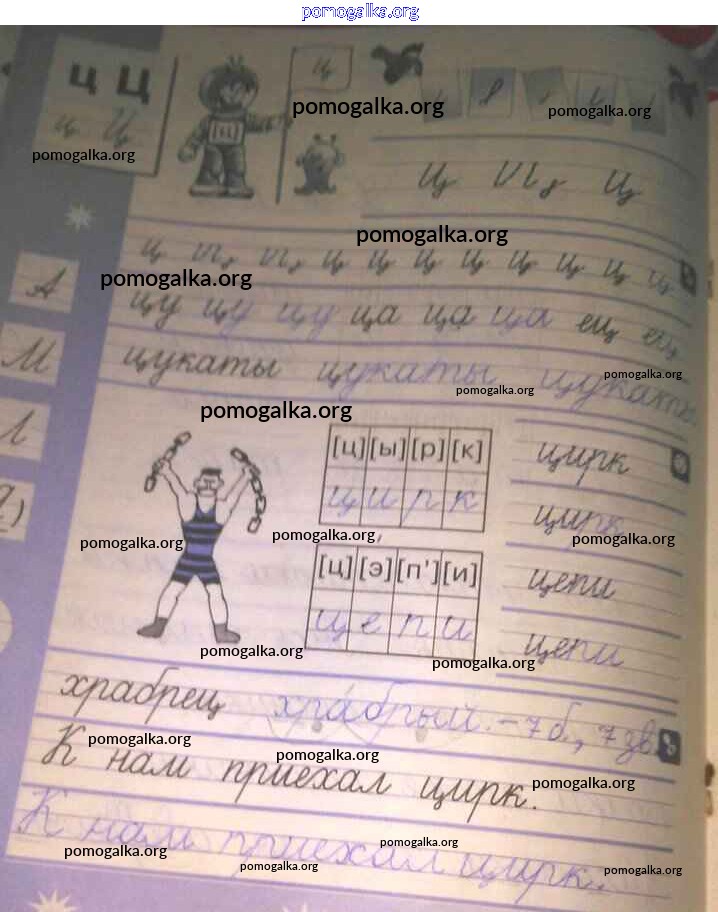 pomogalka.org
ц Ц
ц Ц
ц
[ц]
pomogalka.org
pomogalka.org
pomogalka.org
ц
ц
pomogalka.org
ц ц ц ц ц ц ц ц
А
pomogalka.org
цу цу цу ца ца ца ец ец
М
цукаты цукаты цукаты
pomogalka.org
pomogalka.org
pomogalka.org
Л
[ц] [ы] [р] [к]
цирк
ц и р к
цирк
pomogalka.org
pomogalka.org
pomogalka.org
[ц] [э] [п'] [и]
цепи
ц е п и
цепи
pomogalka.org
pomogalka.org
храбрец храбрый. – 7 б, 7 зв.
pomogalka.org
pomogalka.org
pomogalka.org
К нам приехал цирк.
К нам приехал цирк.
pomogalka.org
pomogalka.org
pomogalka.org
pomogalka.org